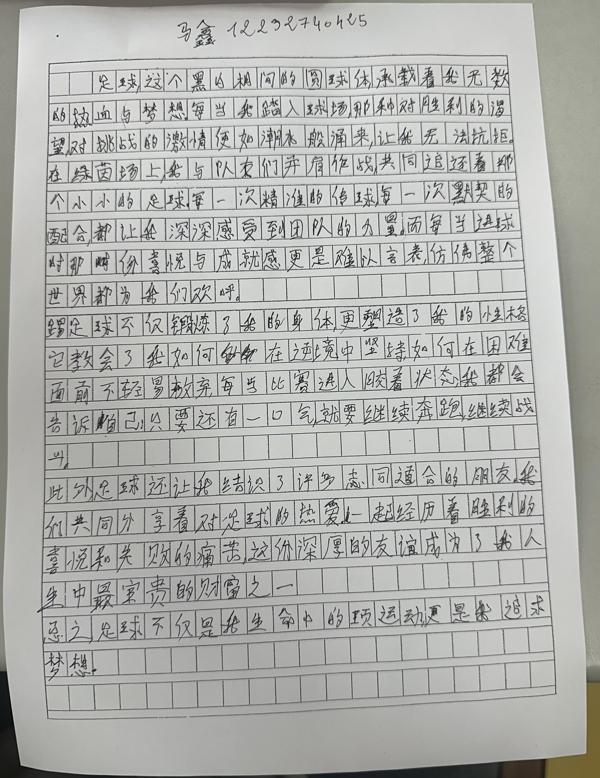 马鑫 12232740425
足球这个黑白相间的圆球体,承载着我无数
的热血与梦想每当我踏入球场,那种对胜利的渴
望,对挑战的激情便如潮水般涌来,让我无法抗拒.
在绿茵场上,我与队友们并肩作战,共同追逐着那
个小小的足球每一次精准的传球每一次默契的
配合,都让我深深感受到团队的力量,而每当进球
时那份喜悦与成就感更是难以言表,仿佛整个
世界都为我们欢呼.
踢足球不仅锻炼了我的身体更塑造了我的性格
它教会了我如何在逆境中坚持如何在困难
面前不轻易放弃每当比赛进入胶着状态,我都会
告诉自己:只要还有一口气,就要继续奔跑,继续战
斗.
此外足球还让我结识了许多志同道合的朋友,我
们共同分享着对足球的热爱,一起经历着胜利的
喜悦和失败的痛苦,这份深厚的友谊成为了我人
生中最宝贵的财富之一
总之,足球不仅是我生命中的项运动,更是我追求
梦想.